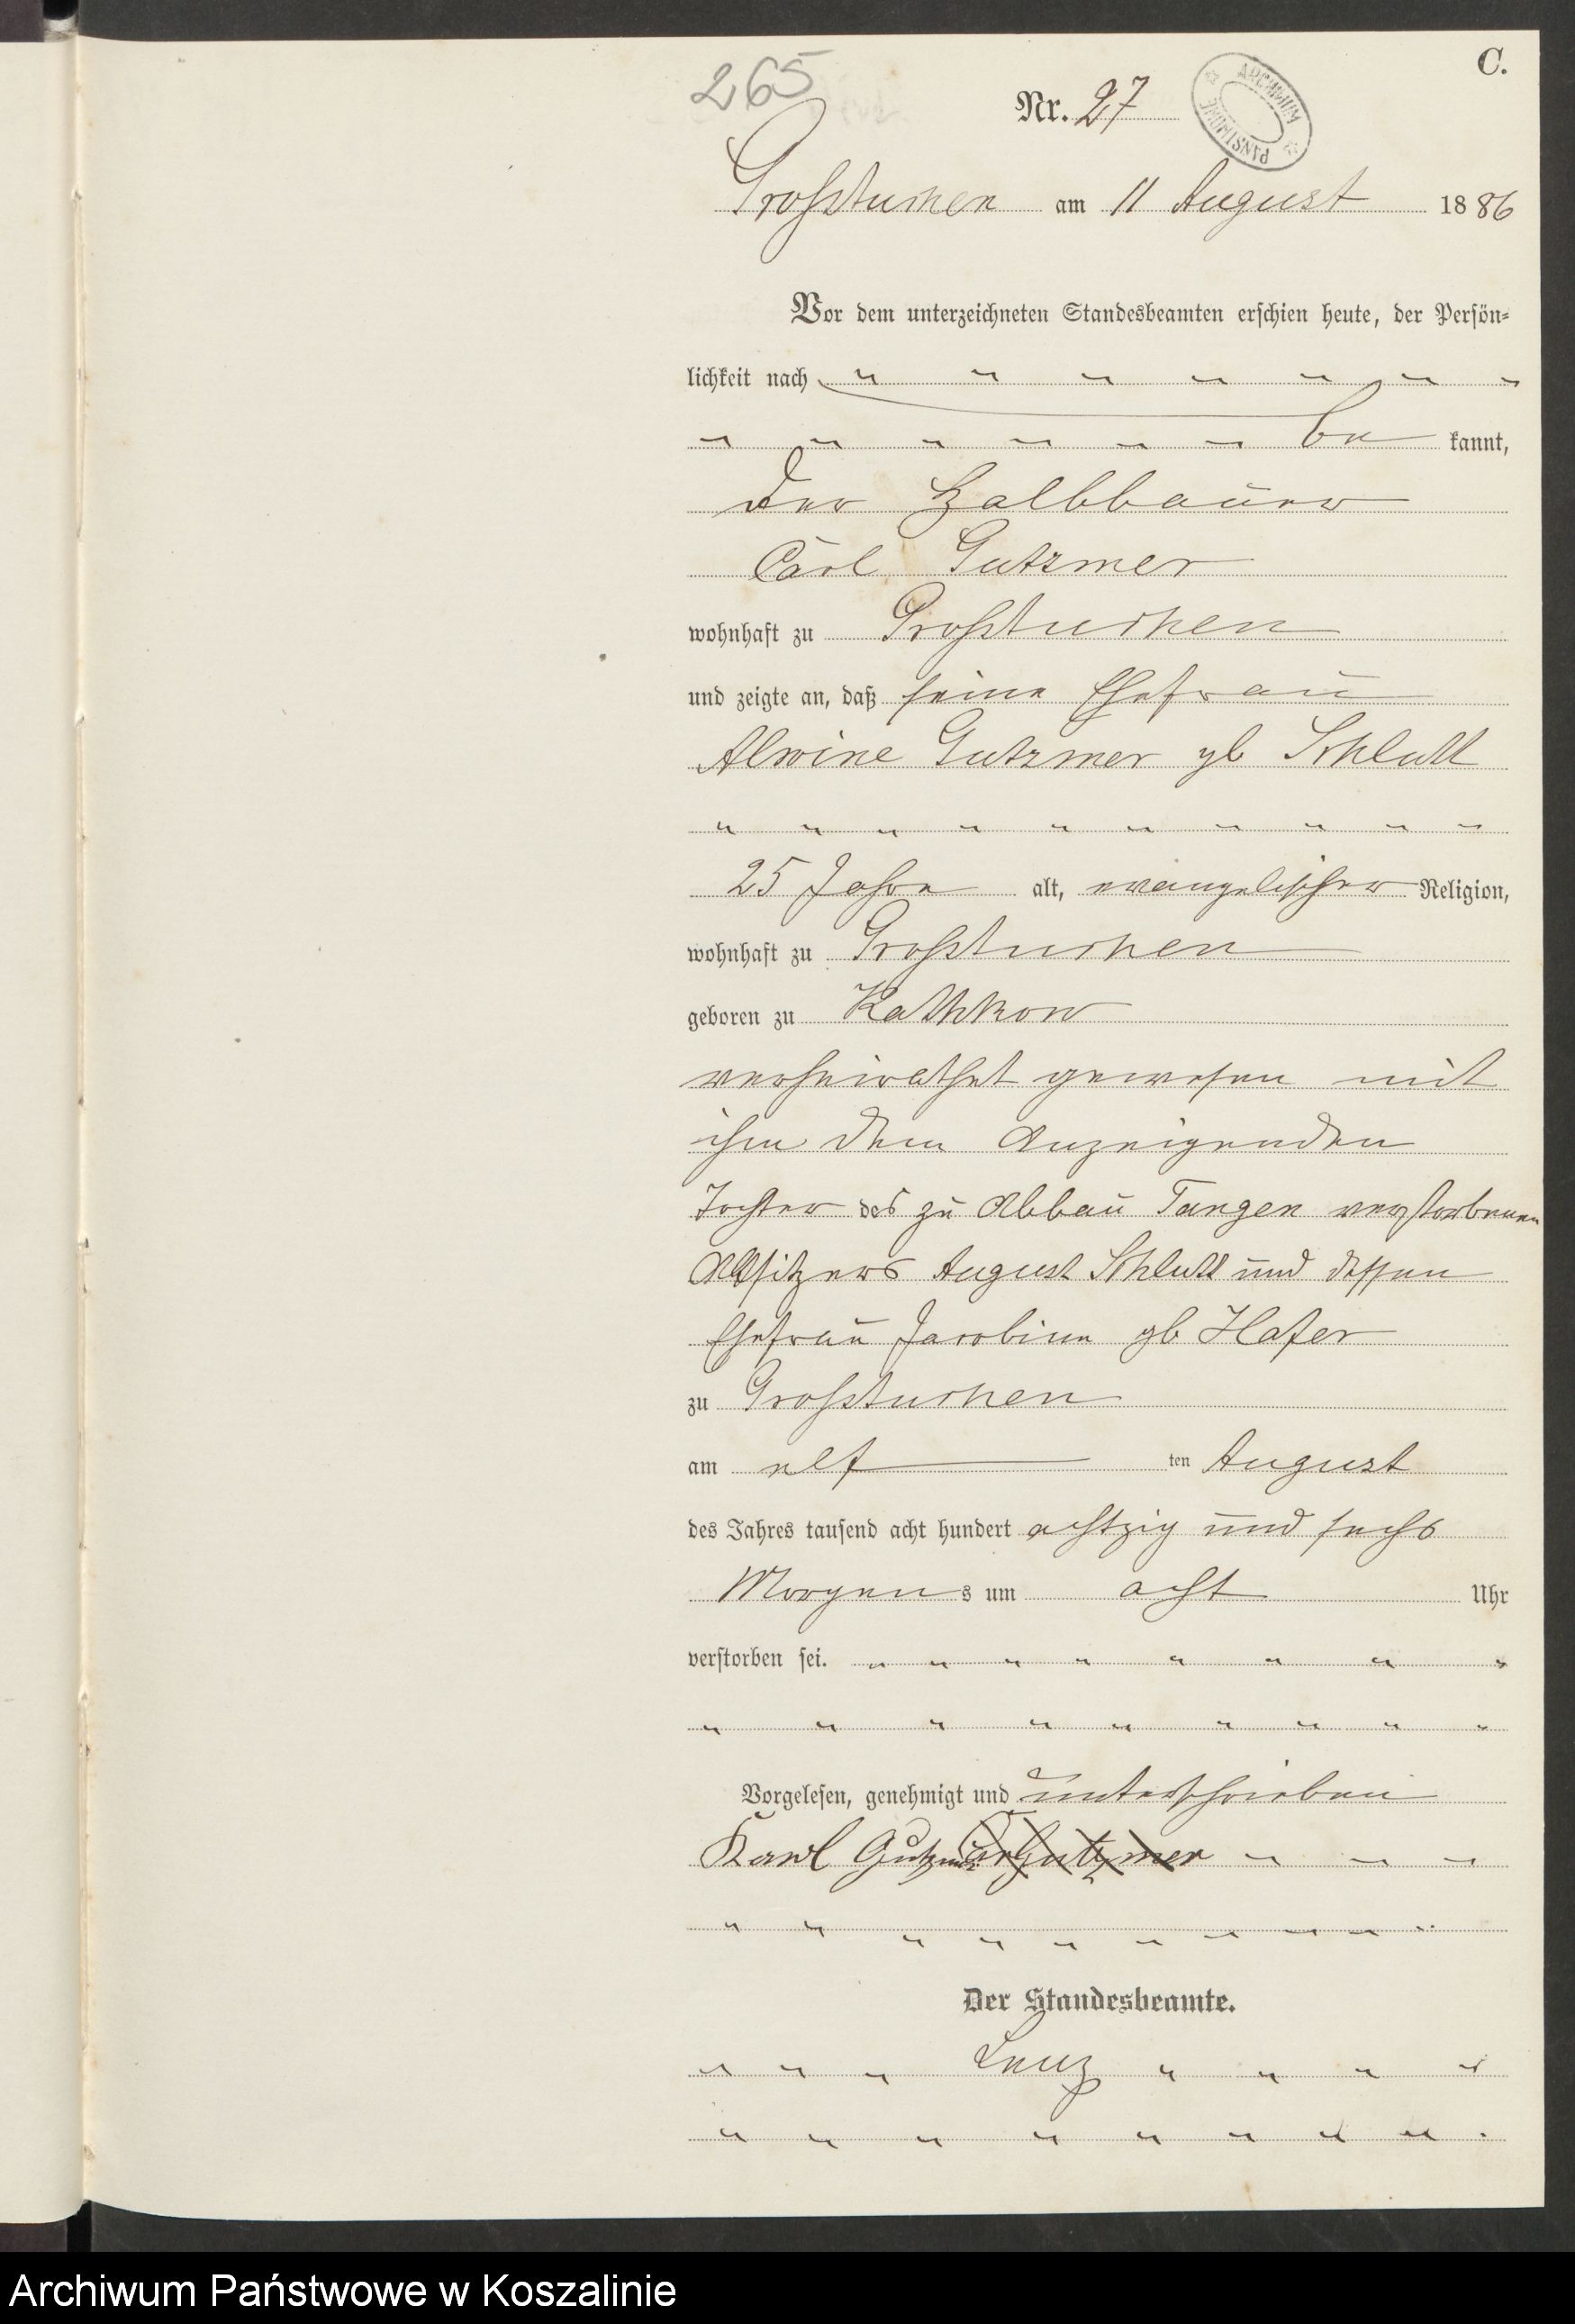 265
C.
Nr. 27
ARCHIWUM PAŃSTWOWE
Großtuchen am 11 August 1886
Vor dem unterzeichneten Standesbeamten erschien heute, der Persön-
lichkeit nach " " " " " " "
" " " " " " be kannt,
der Halbbauer
Carl Gutzmer
wohnhaft zu Großtuchen
und zeigte an, daß seine Ehefrau
Alwine Gutzmer gb Schlutt
" " " " " " " " " "
25 Jahre alt, evangelischer Religion,
wohnhaft zu Großtuchen
geboren zu Kathkow
verheirathet gewesen mit
ihm dem Anzeigenden
Tochter des zu Abbau Tangen verstorbenen
Altsitzers August Schlutt und dessen
Ehefrau Jacobine gb Hafer
zu Großtuchen
am elf ten August
des Jahres tausend acht hundert achtzig und sechs
Morgens um acht Uhr
verstorben sei. " " " " " " " "
" " " " " " " " "
Vorgelesen, genehmigt und unterschrieben
Karl Gutzmer Gutzmer " " "
" " " " " " " " " "
Der Standesbeamte.
" " " Lenz " " " "
" " " " " " " " "
Archiwum Państwowe w Koszalinie